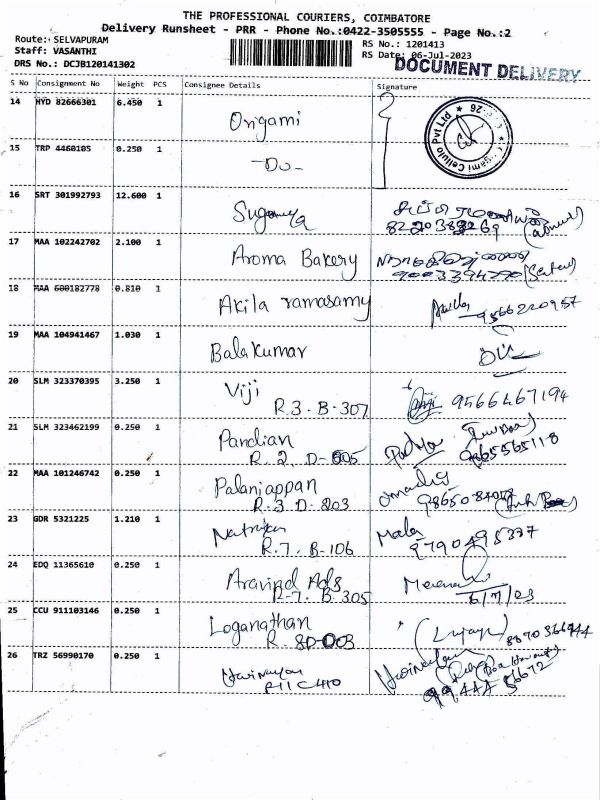 THE PROFESSIONAL COURIERS, COIMBATORE
Delivery Runsheet - PRR - Phone No.:0422-3505555 - Page No.:2
Route: SELVAPURAM
Staff: VASANTHI
DRS No.: DCJB120141302
RS No.: 1201413
RS Date: 06-Jul-2023
DOCUMENT DELIVERY
S No Consignment No Weight PCS Consignee Details Signature
14 HYD 82666301 6.450 1 Origami
15 TRP 4460105 0.250 1 -Do-
16 SRT 301992793 12.600 1
17 MAA 102242702 2.100 1 Aroma Bakery
18 MAA 600182778 0.810 1 Akila ramasamy 9566220957
19 MAA 104941467 1.030 1 Balakumar
20 SLM 323370395 3.250 1 Viji
R.3.B-307 9566467194
21 SLM 323462199 0.250 1 Pandian
R.2.D-005 9865565118
22 MAA 101246742 0.250 1 Palaniappan
R.3.D-203
23 GDR 5321225 1.210 1
R.7.B-106 Mala 9790495337
24 EDQ 11365610 0.250 1 Aravind Ads
R-7.B-305 Meena 6/7/23
25 CCU 911103146 0.250 1 Loganathan
R. 8D-003 8870366944
26 TRZ 56990170 0.250 1
R11C410